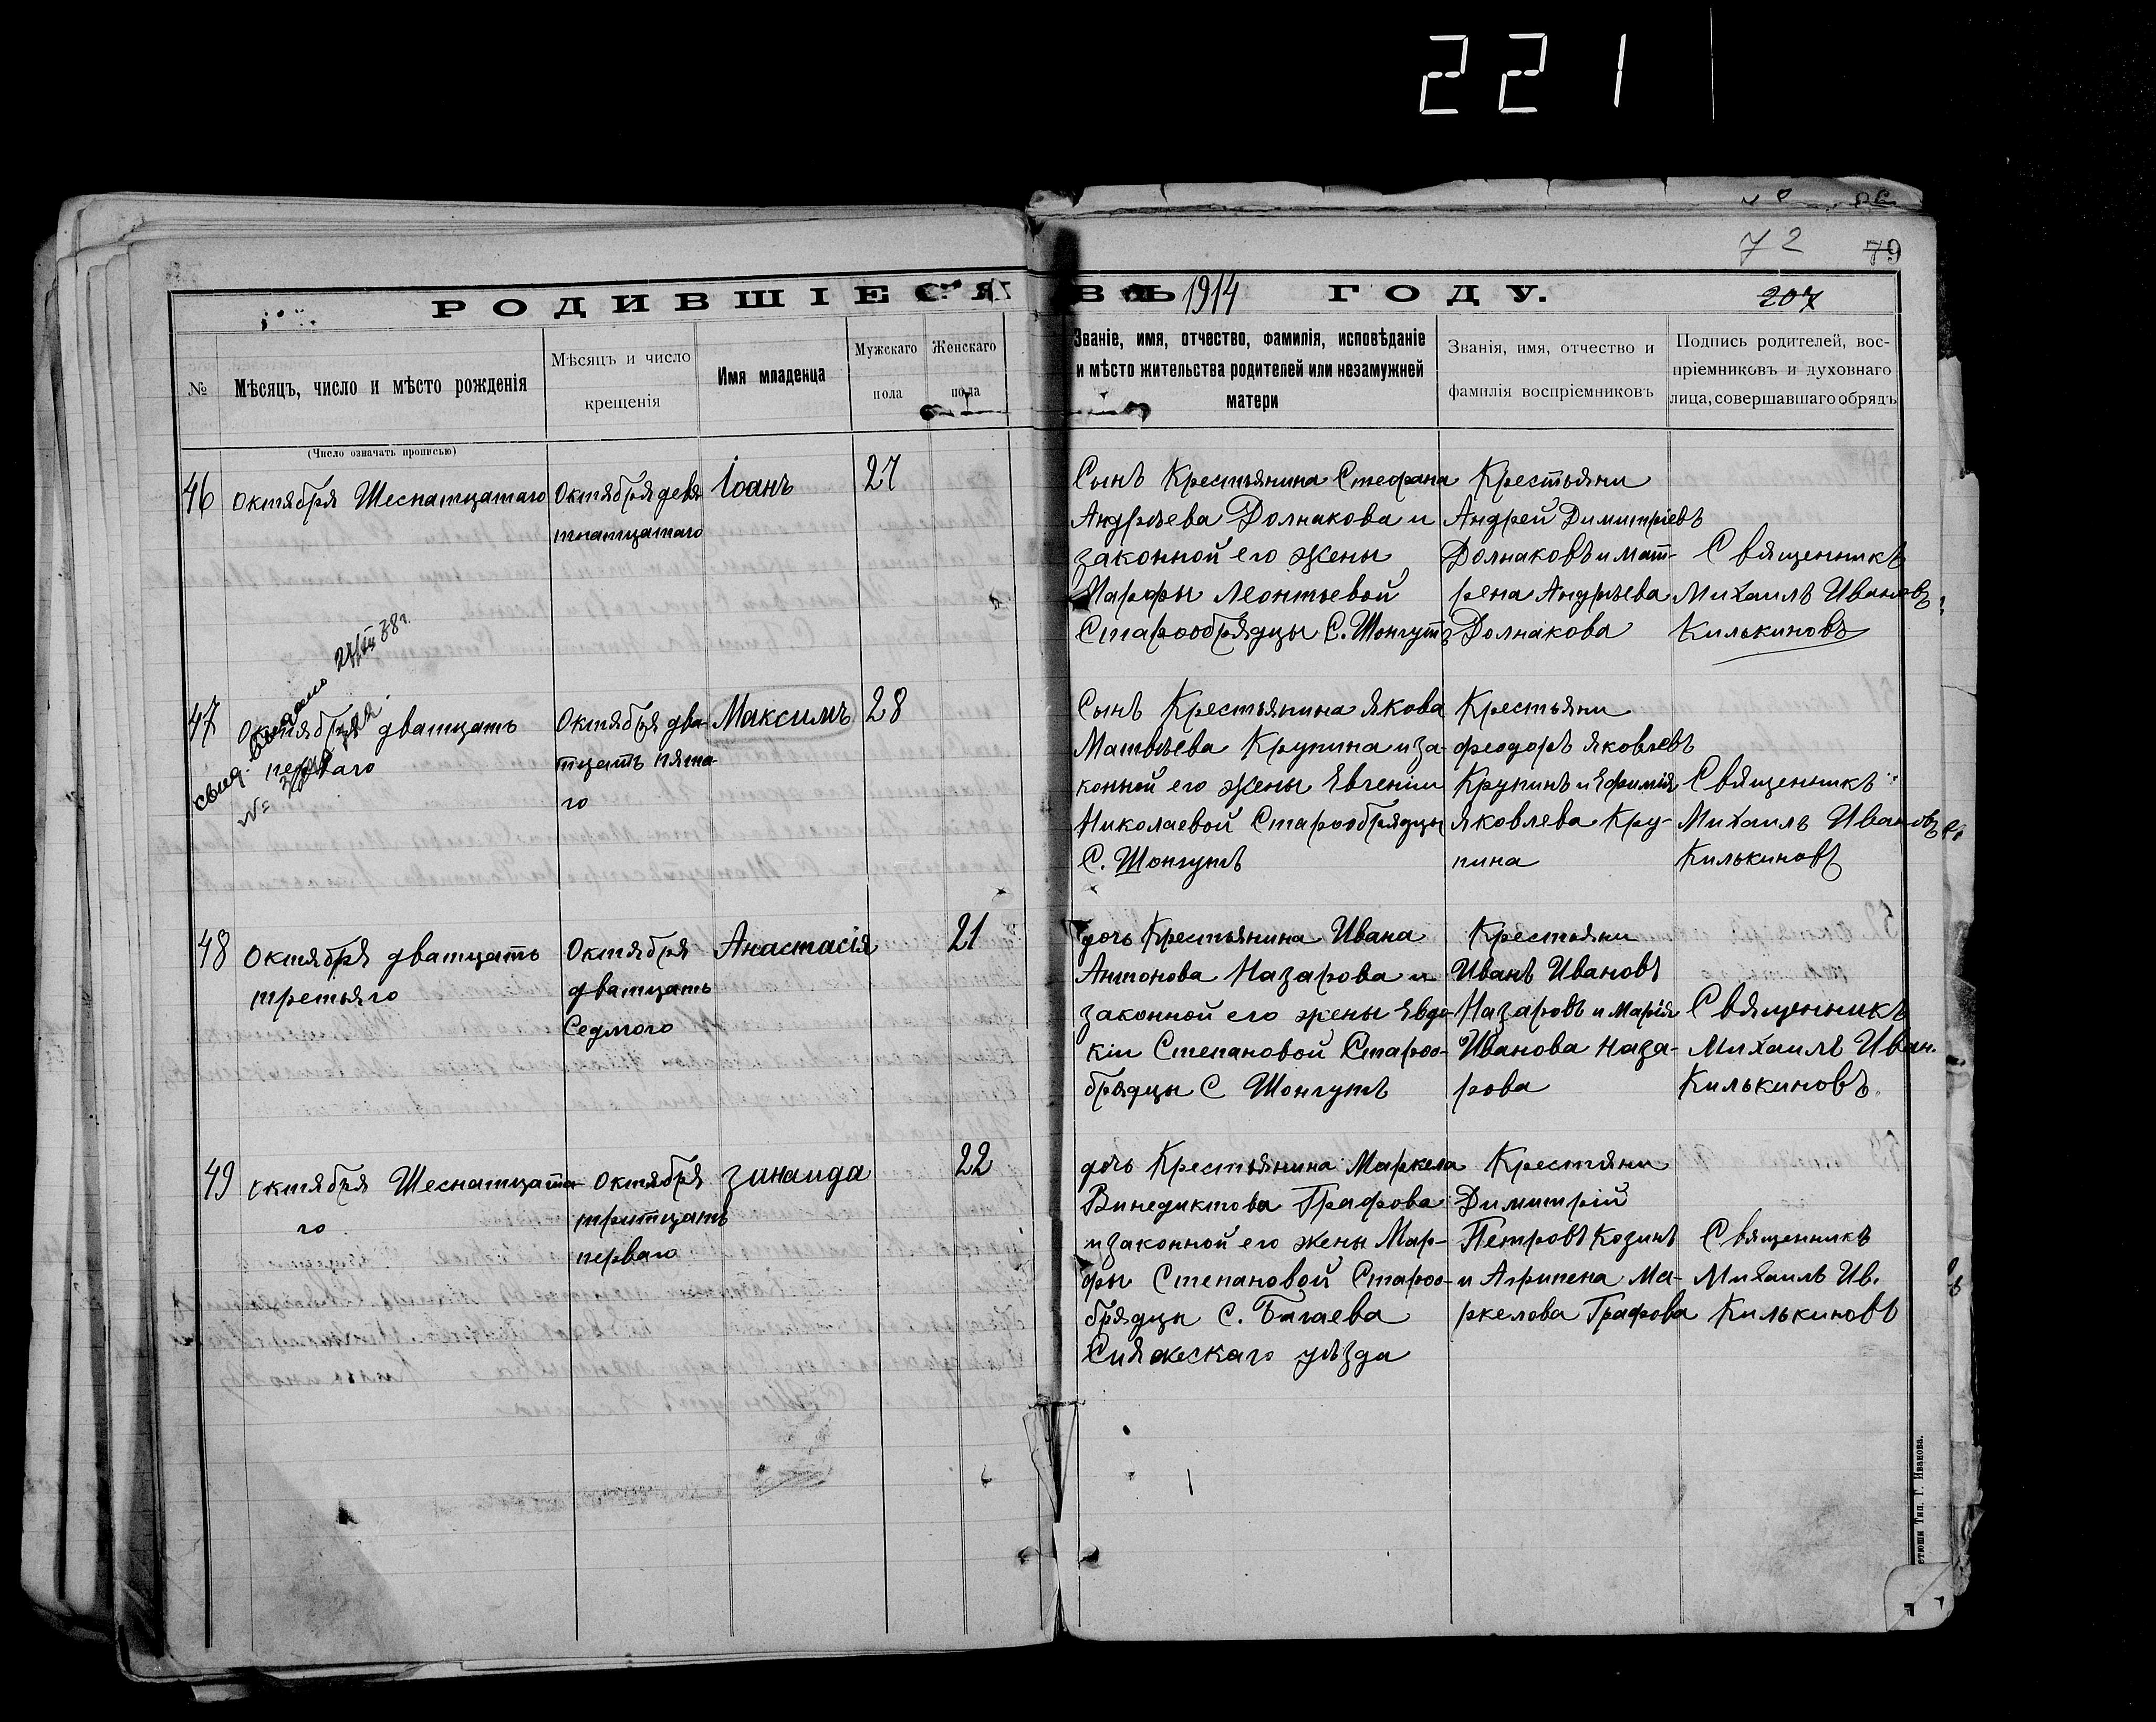 221
72 79
РОДИВШІЕСЯ ВЪ 1914 ГОДУ.
207
№
Мѣсяцъ, число и мѣсто рожденія
(Число означать прописью)
Мѣсяцъ и число
крещенія
Имя младенца
Мужскаго
пола
Женскаго
пола
Званіе, имя, отчество, фамилія, исповѣданіе
и мѣсто жительства родителей или незамужней
матери
Званія, имя, отчество и
фамилія воспріемниковъ
Подпись родителей, вос-
пріемниковъ и духовнаго
лица, совершавшаго обрядъ
46
Октября Шеснатцатаго
Октября девя
тнатцатаго
Іоанъ
27
Сынъ Крестьянина Стефана
Андрѣева Долнакова и
законной его жены
Марфы Леонтьевой
Старообрядцы С. Шонгутъ
Крестьяни
Андрей Димитріевъ
Долнаковъ и Мат-
рена Андрѣева
Долнакова
Священникъ
Михаилъ Ивановъ
Килькиновъ
47
Октября дватцать
перваго
свид. выдано 27/III 38 г.
№
Октября два-
тцать пята-
го
Максимъ
28
Сынъ Крестьянина Якова
Матвѣева Крупина и за-
конной его жены Евгеніи
Николаевой Старообрядцы
С. Шонгутъ
Крестьяни
Феодоръ Яковлевъ
Крупинъ и Ефимія
Яковлева Кру-
пина
Священникъ
Михаилъ Ивановъ
Килькиновъ
48
Октября дватцать
третьяго
Октября
дватцать
Седмого
Анастасія
21
дочь Крестьянина Ивана
Антонова Назарова и
законной его жены Евдо-
кіи Степановой Староо-
брядцы С Шонгутъ
Крестьяни
Иванъ Ивановъ
Назаровъ и Марія
Иванова Наза-
рова
Священникъ
Михаилъ Иван.
Килькиновъ.
49
Октября Шеснатцата-
го
Октября
тритцать
перваго
Зинаида
22
дочь Крестьянина Маркела
Винедиктова Графова
и законной его жены Мар-
фы Степановой Староо-
брядцы С. Багаева
Сияжескаго уѣзда
Крестяни
Димитрій
Петровъ Козинъ
и Агрипена Ма-
ркелова Графова
Священникъ
Михаилъ Ив.
Килькиновъ
Тип. Г. Иванова.